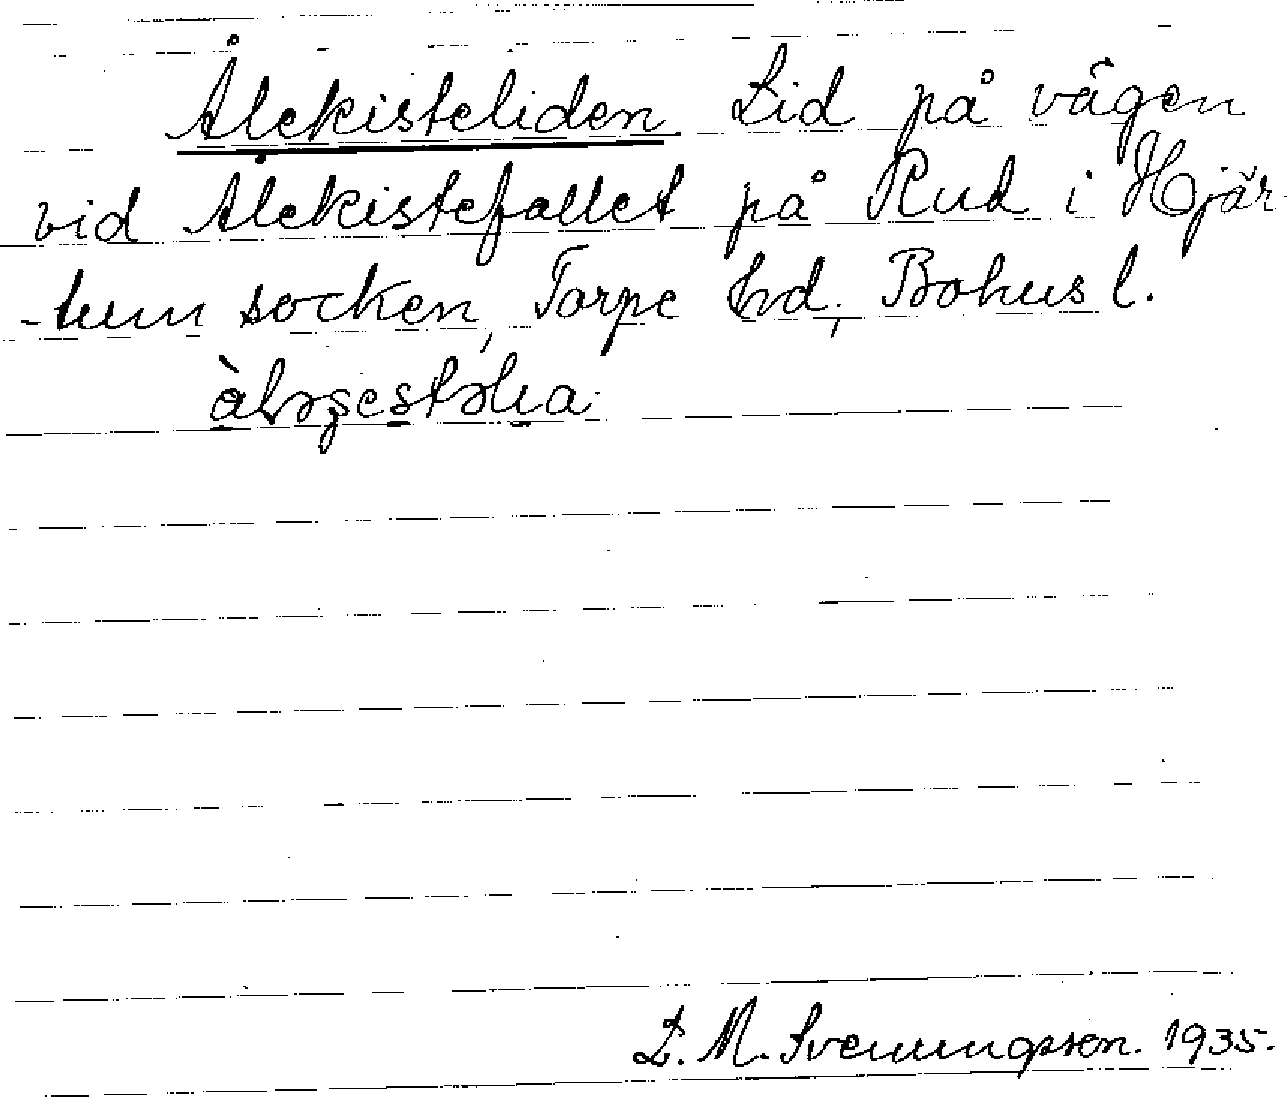 Ålekisteliden Lid på vägen
vid Ålekistefallet på Rud i Hjär-
-tum socken, Torpe hd, Bohus l.
L. M. Svenungsson. 1935.